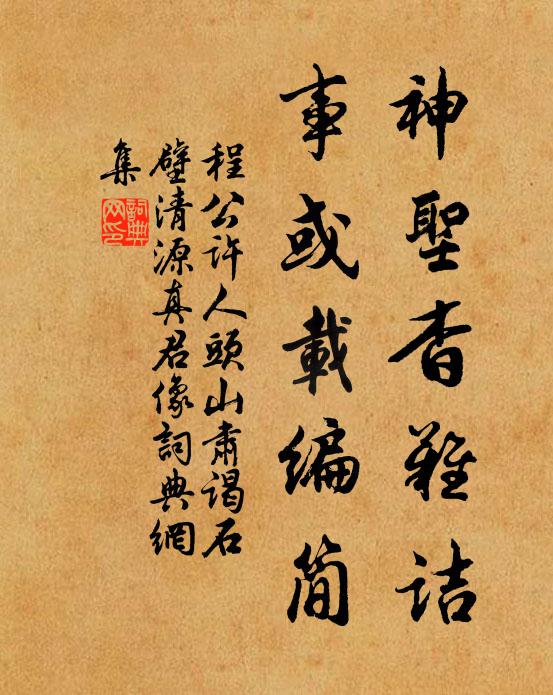 神聖杳難詰
事或載編簡
程公許人頭山肅謁石
壁清源真君像詞典網
集
詞典網印